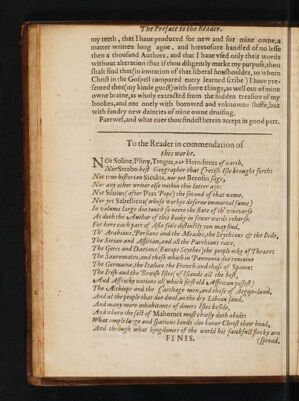 The Preface to the Reader.
my teeth, that I haue produced for new and for mine owne, a
matter written long agoe, and heretofore handled of no lesse
then a thousand Authors, and that I haue vsed only their words
without alteration: But if thou diligently marke my purpose, thou
shalt find that (in imitation of that liberal housholder, to whom
Christ in the Gospell compared euery learned scribe) I haue pre-
sented thee (my kinde guest) with some things, as well out of mine
owne braine, as wholy extracted from the hidden treasure of my
bookes, and not onely with borowed and vnknowne stuffe, but
with sundry new dainties of mine owne deuising.
Farewel, and what euer thou findest herein accept in good part.
To the Reader in commendation of
this worke.
NOt Soline, Pliny, Trogus, nor Herodotus of earth,
Nor Strabo best Geographer that Cretish Isle brought forth:
Not true historian Siculus, nor yet Berosus sage,
Nor any other writer else within this latter age:
Nor Siluius (after Pius Pope) the second of that name,
Nor yet Sabellicus whose workes deserue immortall fame,
In volume large due touch so neere the state of th' vniuerse
As doth the Author of this booke in fewer words rehearse.
For here each part of Asia soile distinctly you may find,
Th' Arabians, Persians and the Meades, the Scythians & the Inde,
The Sirian and Assirian, and all the Parthians race,
The Getes and Dacians (Europs Scythes) the people eke of Thrace:
The Sauromates, and those which in Pannonia doe remaine
The Germaine, the Italian the French and those of Spaine:
The Irish and the Brittish Isles, (of Islands all the best,
And Affricke nations all which first old Affrican possest)
The Aethiops and the Carthage men, and those of Aegipt-land,
And al the people that doe dwel on the dry Libian sand,
And many more inhabitants of diuers Isles beside,
And where the sect of Mahomet most chiefly doth abide:
What ample large and spatious lands doe honor Christ their head,
And through what kingdomes of the world his faithfull flocke are
FINIS. (spread.